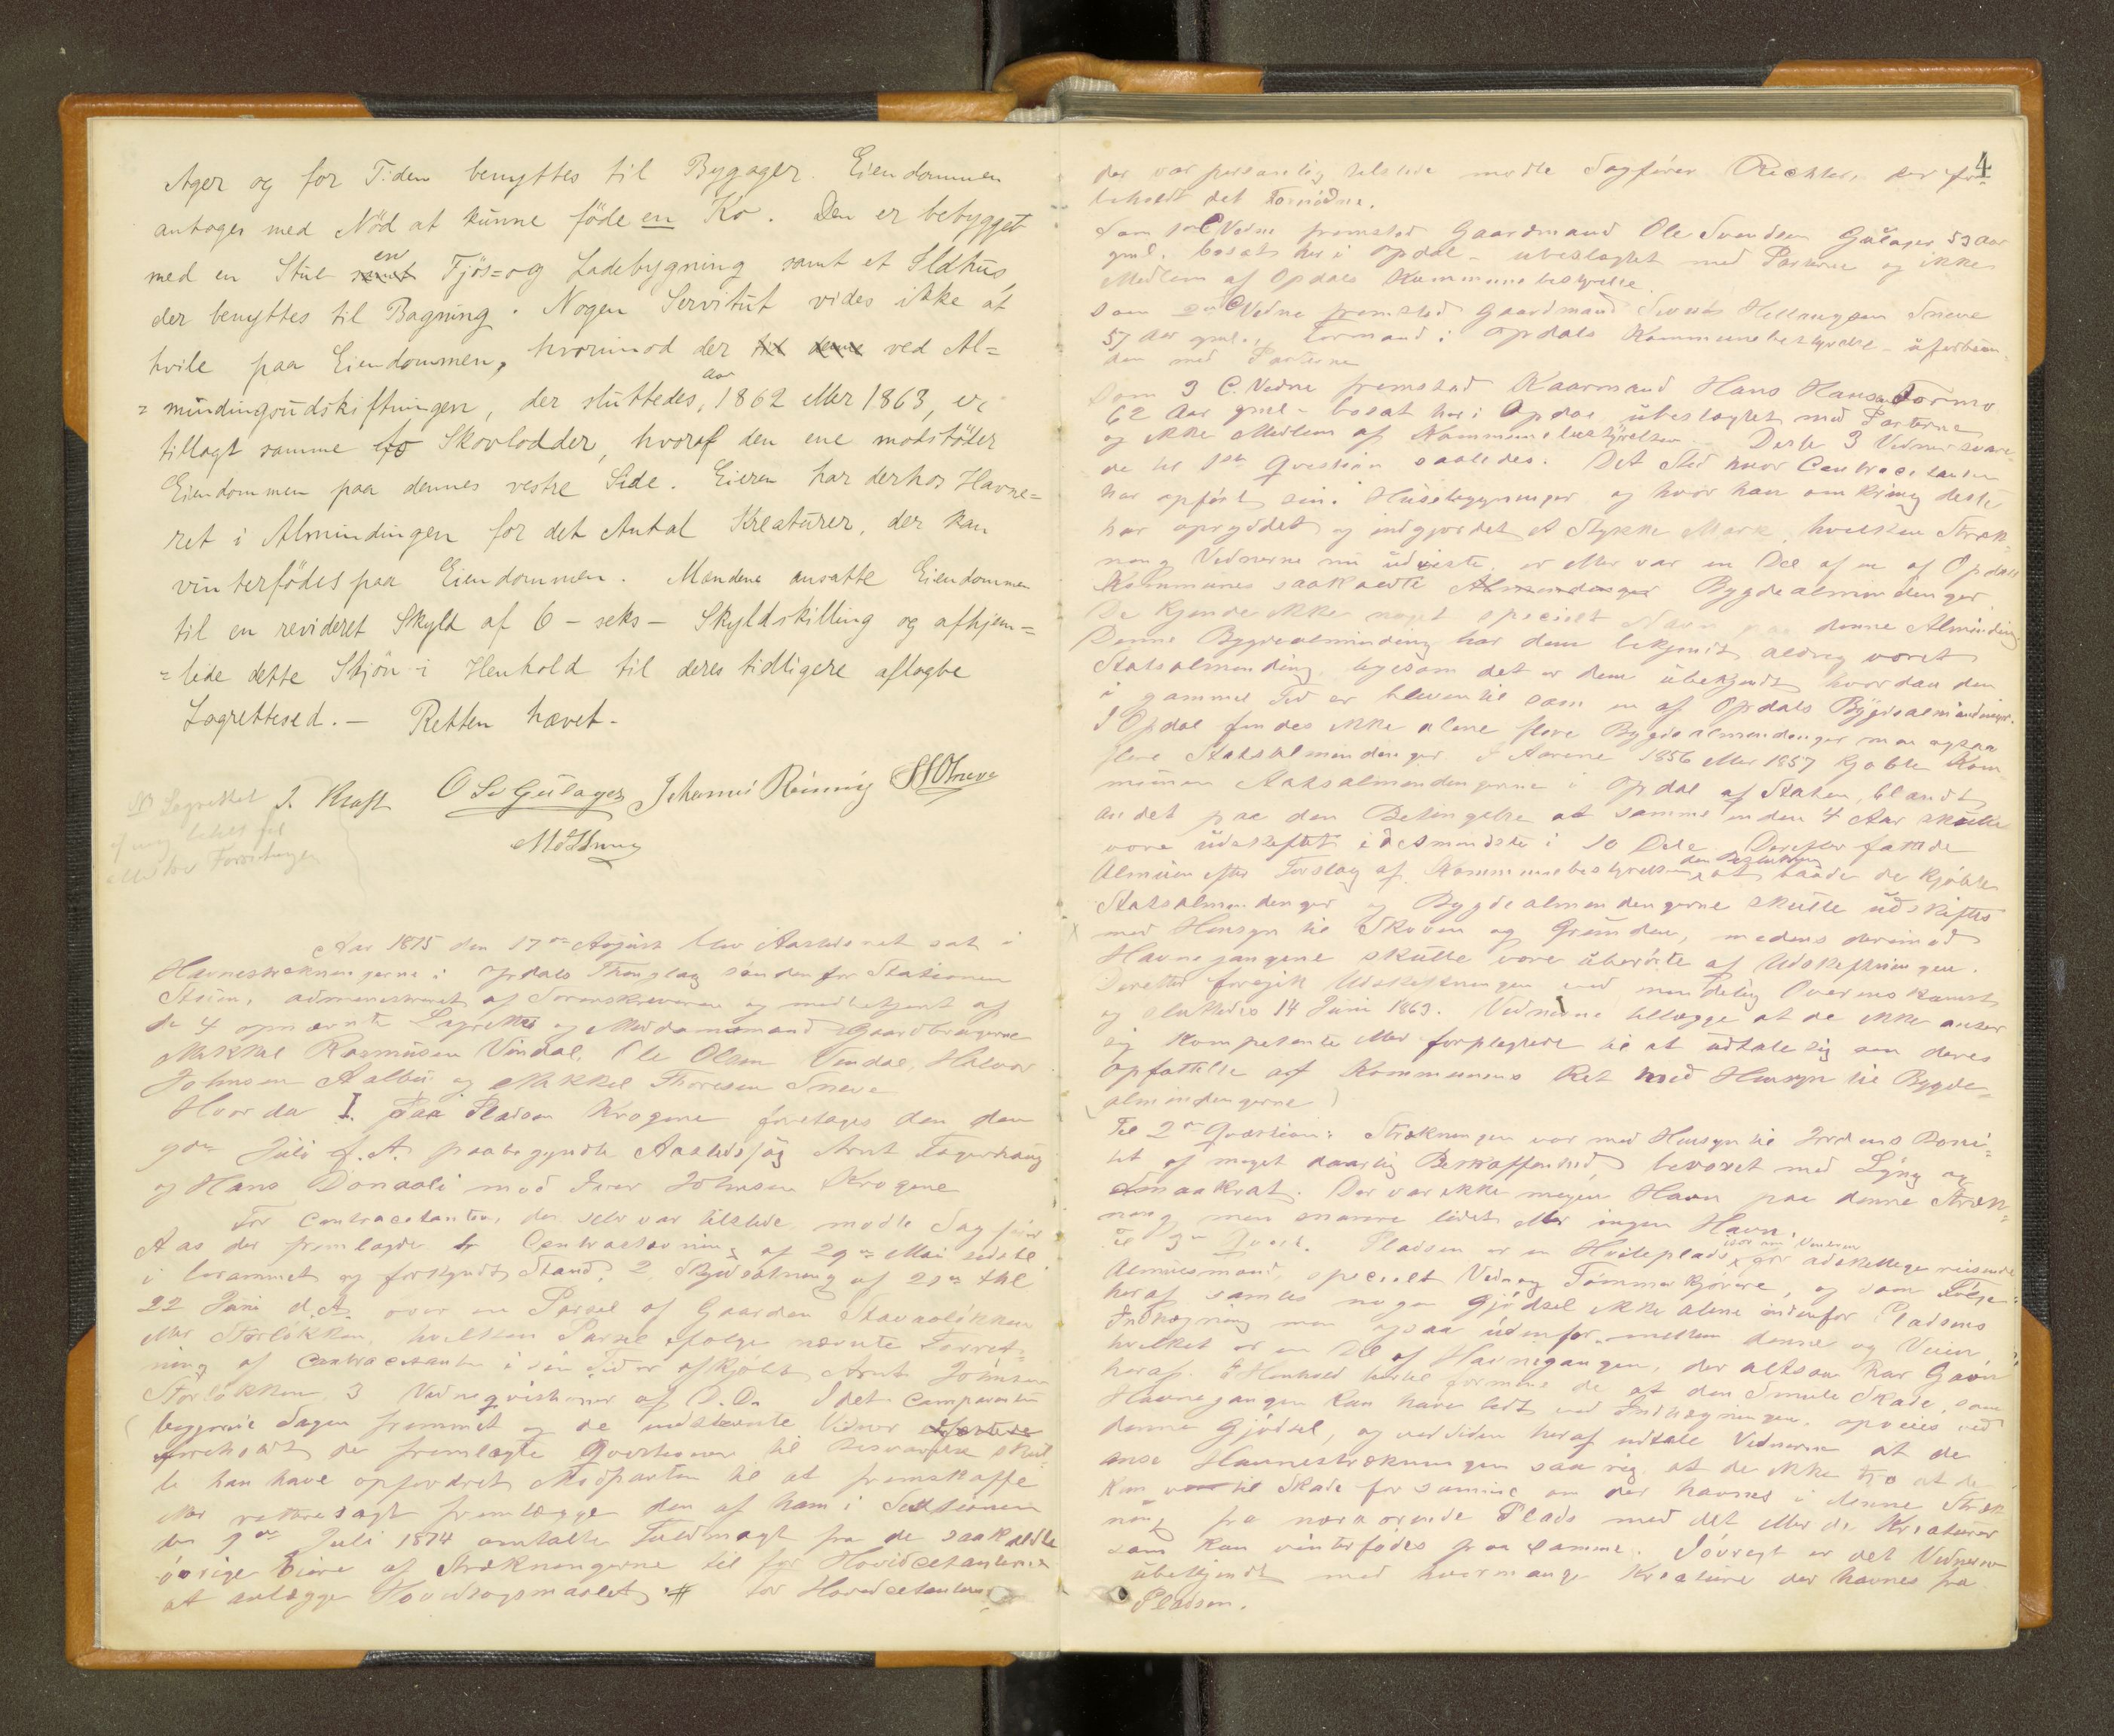 Ager og for Tiden benyttes til Bygager. Eiendommen
antages med Nöd at kunne föde en Ko. Den er bebygget
med en Stue samt en Fjös= og Ladebygning samt et Ildhus,
der benyttes til Bagning. Nogen Servitut vides ikke at
hvile paa Eiendommen, hvorimod der til denne ved Al=
=mindingsudskiftningen, der sluttedes aar 1862 eller 1863, er
tillagt samme to Skovlodder, hvoraf den ene modstöder
Eiendommen paa dennes vestre Side. Eieren har derhos Havne=
ret i Almindingen for det Antal Kreaturer, der kan
vinterfödes paa Eiendommen. Mændene ansatte Eiendommen
til en revideret Skyld af 6 - seks - Skyldskilling og afhjem=
=lede dette Skjön i Henhold til deres tidligere aflagte
Lagrettesed. - Retten hævet -
J. Kraft O S Gulager Johannes Rönning
Aar 1875 den 17de August blev Aastedsret sat i
Havnestrækningerne i Opdals Thinglag söndenfor Stationen
Stuen, administreret af Sorenskriveren og medbetjent af
de 4 opnævnte Lagrettes og Meddomsmænd Gaardbrugerne
Mikkel Rasmusen Vindal, Ole Olsen Vindal, Halvor
Johnsen Aalbu og Mikkel Thoresen Sneve
Hvorda I. paa Pladsen Krogene foretages den den
9de Juli f. A. paabegyndte Aastedssag Arnt Fagerhaug
og Hans Donaali mod Iver Johnsen Krogene
For Contracitanten, der selv var tilstede mödte Sagförer
Aas der fremlagde Contrastævning af 29de Mai sidstl
i beramet og forkyndt Stand, 2, Skjödsætning af
22 Juni d.A. over en Parsel af Gaarden Stavaalökken
eller Storlökken, hvilken Parsel ifölge nævnte Forret=
ning af Contracitanten i sin Tid er afkjöbt Arnt Johnsen
Storlökken, 3 Vidneqvistioner af D.D. Idet Comparenten
begjærede Sagen fremmet og de indstævnte Vidner
de fremlagte Qvestioner til Besvarelse skul=
le han have opfordret Modparten til at fremskaffe
eller rettere sagt fremlægge den af ham i Sessionen
den 9de Juli 1874 omtalte Fuldmagt fra de saakaldte
övrige Eiere af Strækningerne til for Hovedcitanterne
at anlægge Hovedsögsmaalet. # For Hovedcitanterne
4
der var personlig tilstede mödte Sagförer Richter, der for=
beholdt det Fornödne.
Som 1ste C Vidne fremstod Gaardmand Ole Svendsen Gulager 53 aar
gml. bosat her i Opdal - ubeslægtet med Parterne og ikke
Medlem af Opdals Kommunebestyrelse.
Som 2det C Vidne fremstod Gaardmand Sneve
57 Aar gml., Formand i Opdals Kommunebestyrelse - uforbun=
den med Parterne
Som 3 C. Vidne fremstod Kaarmand Hans Hansen Formo
62 Aar gml - bosat her i Opdal ubeslægtet med Parterne
og ikke Medlem af Kommunebestyrelsen Disse 3 Vidner svare=
de til 1ste Qvestion saaledes: Det Sted hvor Contracitanten
har opfört sine Husebygninger og hvor han omkring disse
har opryddet og indgjærdet et Stykke Mark, hvilken Stræk=
ning Vidnerne nu udviste, er eller var en Del af en af Opdals
Kommunes saakaldte Almendinger Bygdealmendinger
De kjende ikke noget specielt Navn paa denne Alminding
Denne Bygdealminding har dem bekjendt aldrig været
Statsalmending, ligesom det er dem ubekjendt hvordan den
i gammel Tid er bleven til som en af Opdals Bygdealmindinger.
I Opdal findes ikke alene flere Bygdealmendinger men ogsaa
flere Statsalmendinger. I Aarene 1856 eller 1857 kjöbte Kom
munen Statsalmendingerne i Opdal af Staten, blandt
andet paa den Betingelse at samme inden 4 Aar skulle
være udskiftet i det mindste i 10 Dele. Derefter fattede
Almuen efter Forslag af Kommunebestyrelsen den Beslutning at baade de kjöbte
Statsalmendinger og Bygdealmendingerne skulle udskiftes
med Hensyn til Skoven og Grunden, medens derimod
Havnegangene skulle være uberörte af Udskiftningen.
Derefter foregik Udskiftningen ved mindelig Overenskomst
og sluttedes 14 Juni 1863. Vidnerne tillægge at de ikke anser
sig kompetente eller forpligtede til at udtale sig om deres
Opfattelse af Kommunens Ret med Hensyn til Bygde=
almindingerne
Til 2den Qvæstion: Strækningen var med Hensyn til Jordens Boni=
tet af meget daarlig Beskaffenhed bevoxet med Lyng og
Smaakrat. Der var ikke megen Havn paa denne Stræk=
ning men snarere lidet eller ingen Havn.
Til 3de Qvest. Pladsen er en Hvileplads især om Vinteren for adskillige reisende
Almuesmænd, specielt Ved og Tömmerkjörere, og som Fölge
heraf samles nogen Gjödsel ikke alene indenfor Pladsens
Indhegning men ogsaa udenfor mellem denne og Veien,
hvilket er en Del af Havnegangen, der altsaa har Gavn
heraf. I Henhold hertil formene de at den Smule Skade, som
Havnegangen kan have lidt ved Indhegningen opveies ved
denne Gjödsel, og ved Siden heraf udtale Vidnerne at de
anse Havnestrækningen saa rig at de ikke tro at det
kan være til Skade for samme om der havnes i denne Stræk
ning fra nærværende Plads med det eller de Kreaturer
som kan vinterfödes paa samme. Iövrigt er det Vidnerne
ubekjendt med hvormange Kreature der havnes fra
Pladsen.